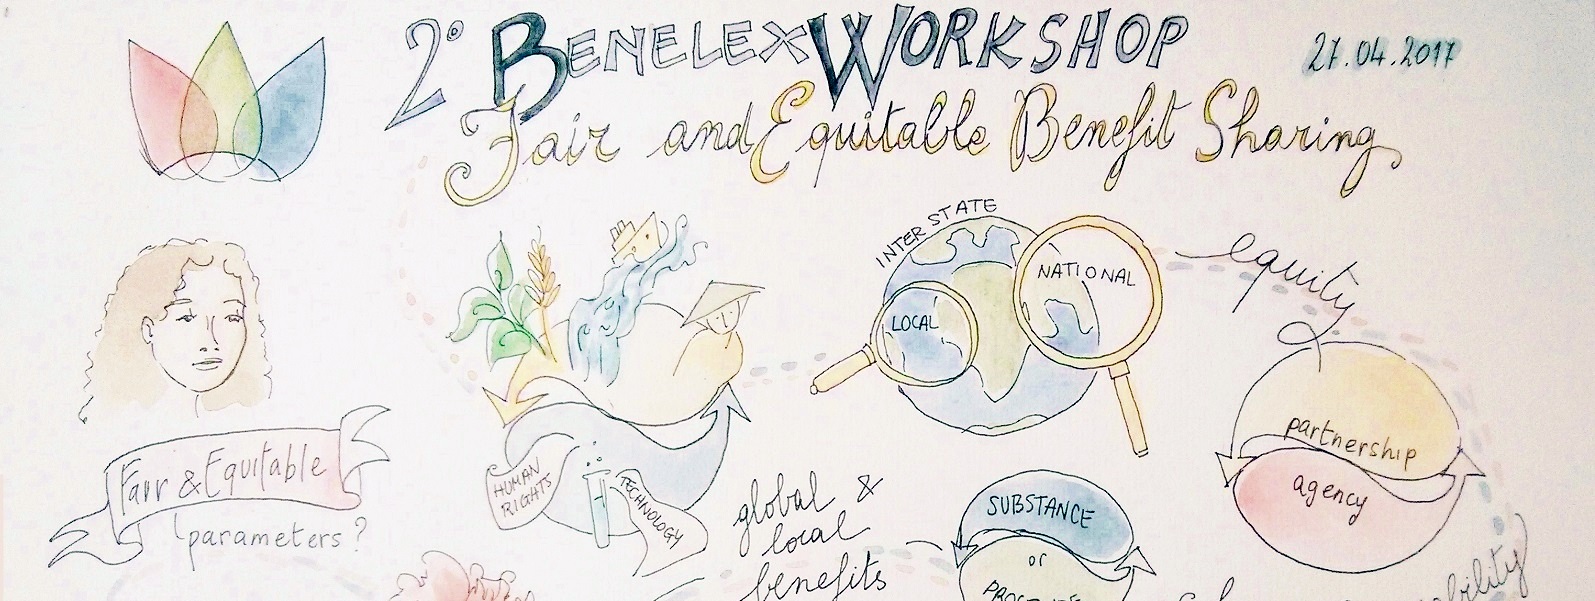 2° BENELEX WORKSHOP
27.04.2017
Fair and Equitable Benefit Sharing
INTER STATE
NATIONAL
LOCAL
equity
Fair & Equitable
parameters?
HUMAN
RIGHTS
TECHNOLOGY
global &
local
benefits
SUBSTANCE
or
partnership
agency